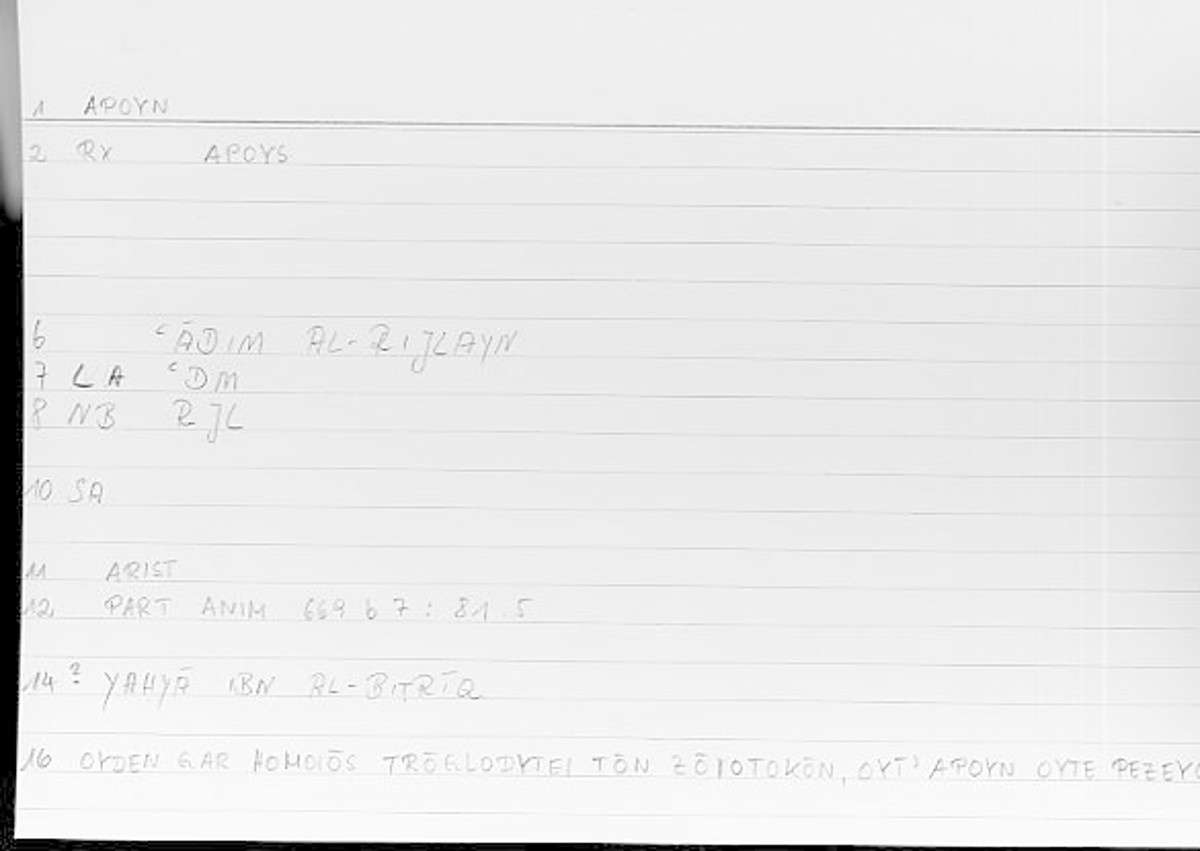 1 APOYN
2 RX APOYS
6 ʿĀDIM AL-RIJLAYN
7 LA ʿDM
8 NB RJL
10 SA
11 ARIST
12 PART ANIM 669 b 7 : 81.5
14 ? YAḤYĀ IBN AL-BIṬRĪQ
16 OYDEN GAR HOMOIŌS TRŌGLODYTEI TŌN ZŌIOTOKŌN, OYT' APOYN OYTE PEZEYO